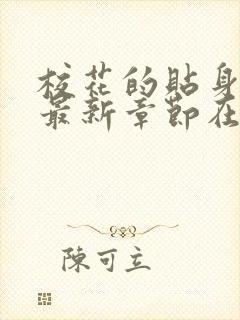 校花的貼身
最新章節在
陳可立